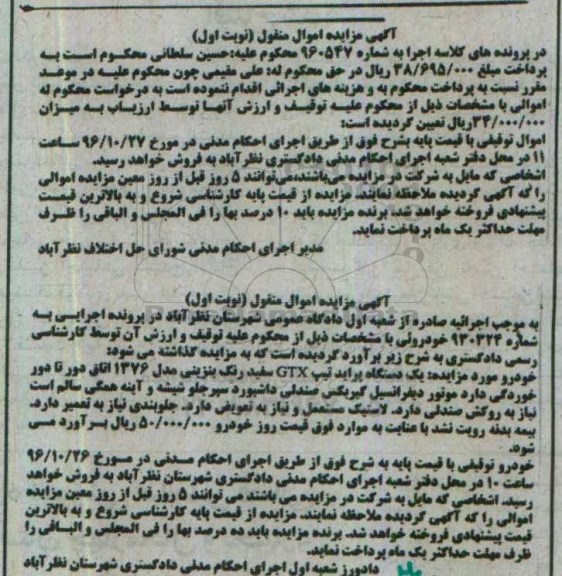 آگهی مزایده اموال منقول (نوبت اول)
در پرونده های کلاسه اجرا به شماره ۹۶۰۵۴۷ محکوم علیه:حسین سلطانی محکوم است به
پرداخت مبلغ ۳۸/۶۹۵/۰۰۰ ریال در حق محکوم له: علی مقیمی چون محکوم علیه در موعد
مقرر نسبت به پرداخت محکوم به و هزینه های اجرائی اقدام ننموده است به درخواست محکوم له
اموالی با مشخصات ذیل از محکوم علیه توقیف و ارزش آنها توسط ارزیاب به میزان
۳۴/۰۰۰/۰۰۰ریال تعیین گردیده است:
اموال توقیفی با قیمت پایه بشرح فوق از طریق اجرای احکام مدنی در مورخ ۹۶/۱۰/۲۷ ساعت
۱۱ در محل دفتر شعبه اجرای احکام مدنی دادگستری نظرآباد به فروش خواهد رسید.
اشخاصی که مایل به شرکت در مزایده می‌باشند،می‌توانند ۵ روز قبل از روز معین مزایده اموالی
را که آگهی گردیده ملاحظه نمایند. مزایده از قیمت پایه کارشناسی شروع و به بالاترین قیمت
پیشنهادی فروخته خواهد شد. برنده مزایده باید ۱۰ درصد بها را فی المجلس و الباقی را ظرف
مهلت حداکثر یک ماه پرداخت نماید.
مدیر اجرای احکام مدنی شورای حل اختلاف نظرآباد
آگهی مزایده اموال منقول (نوبت اول)
به موجب اجرائیه صادره از شعبه اول دادگاه عمومی شهرستان نظرآباد در پرونده اجرایی به
شماره ۹۳۰۳۲۴ خودروئی با مشخصات ذیل از محکوم علیه توقیف و ارزش آن توسط کارشناسی
رسمی دادگستری به شرح زیر برآورد گردیده است که به مزایده گذاشته می شود:
خودرو مورد مزایده: یک دستگاه پراید تیپ GTX سفید رنگ بنزینی مدل ۱۳۷۶ اتاق دور تا دور
خوردگی دارد موتور دیفرانسیل گیربکس صندلی داشبورد سپر جلو شیشه و آینه همگی سالم است
نیاز به روکش صندلی دارد. لاستیک مستعمل و نیاز به تعویض دارد. جلوبندی نیاز به تعمیر دارد.
بیمه بدنه رویت نشد با عنایت به موارد فوق قیمت روز خودرو ۵۰/۰۰۰/۰۰۰ ریال برآورد می
شود.
خودرو توقیفی با قیمت پایه به شرح فوق از طریق اجرای احکام مدنی در مورخ ۹۶/۱۰/۲۶
ساعت ۱۰ در محل دفتر شعبه اجرای احکام مدنی دادگستری شهرستان نظرآباد به فروش خواهد
رسید. اشخاصی که مایل به شرکت در مزایده می باشند می توانند ۵ روز قبل از روز معین مزایده
اموالی را که آگهی گردیده ملاحظه نمایند. مزایده از قیمت پایه کارشناسی شروع و به بالاترین
قیمت پیشنهادی فروخته خواهد شد. برنده مزایده باید ده درصد بها را فی المجلس و الباقی را
ظرف مهلت حداکثر یک ماه پرداخت نماید.
دادورز شعبه اول اجرای احکام مدنی دادگستری شهرستان نظرآباد